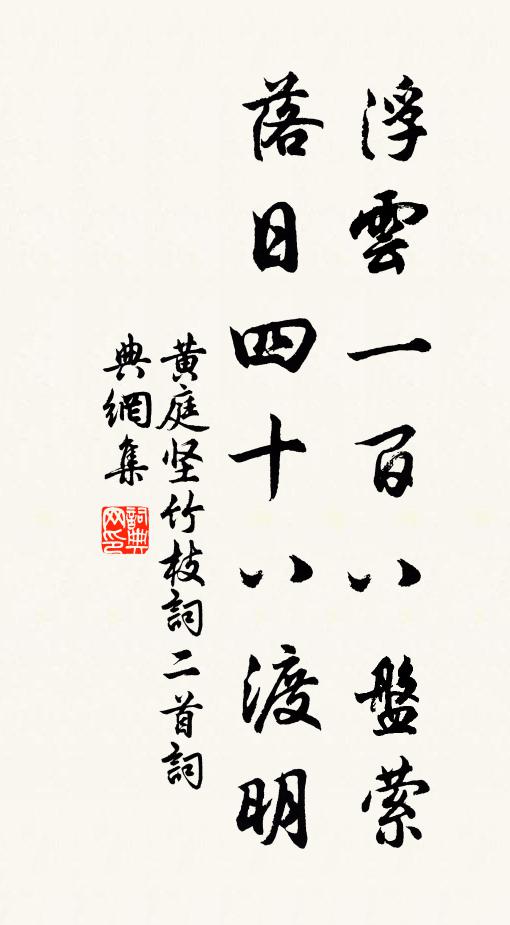 浮雲一百八盤萦
落日四十八渡明
黄庭坚竹枝詞二首詞
典網集
詞典
网印